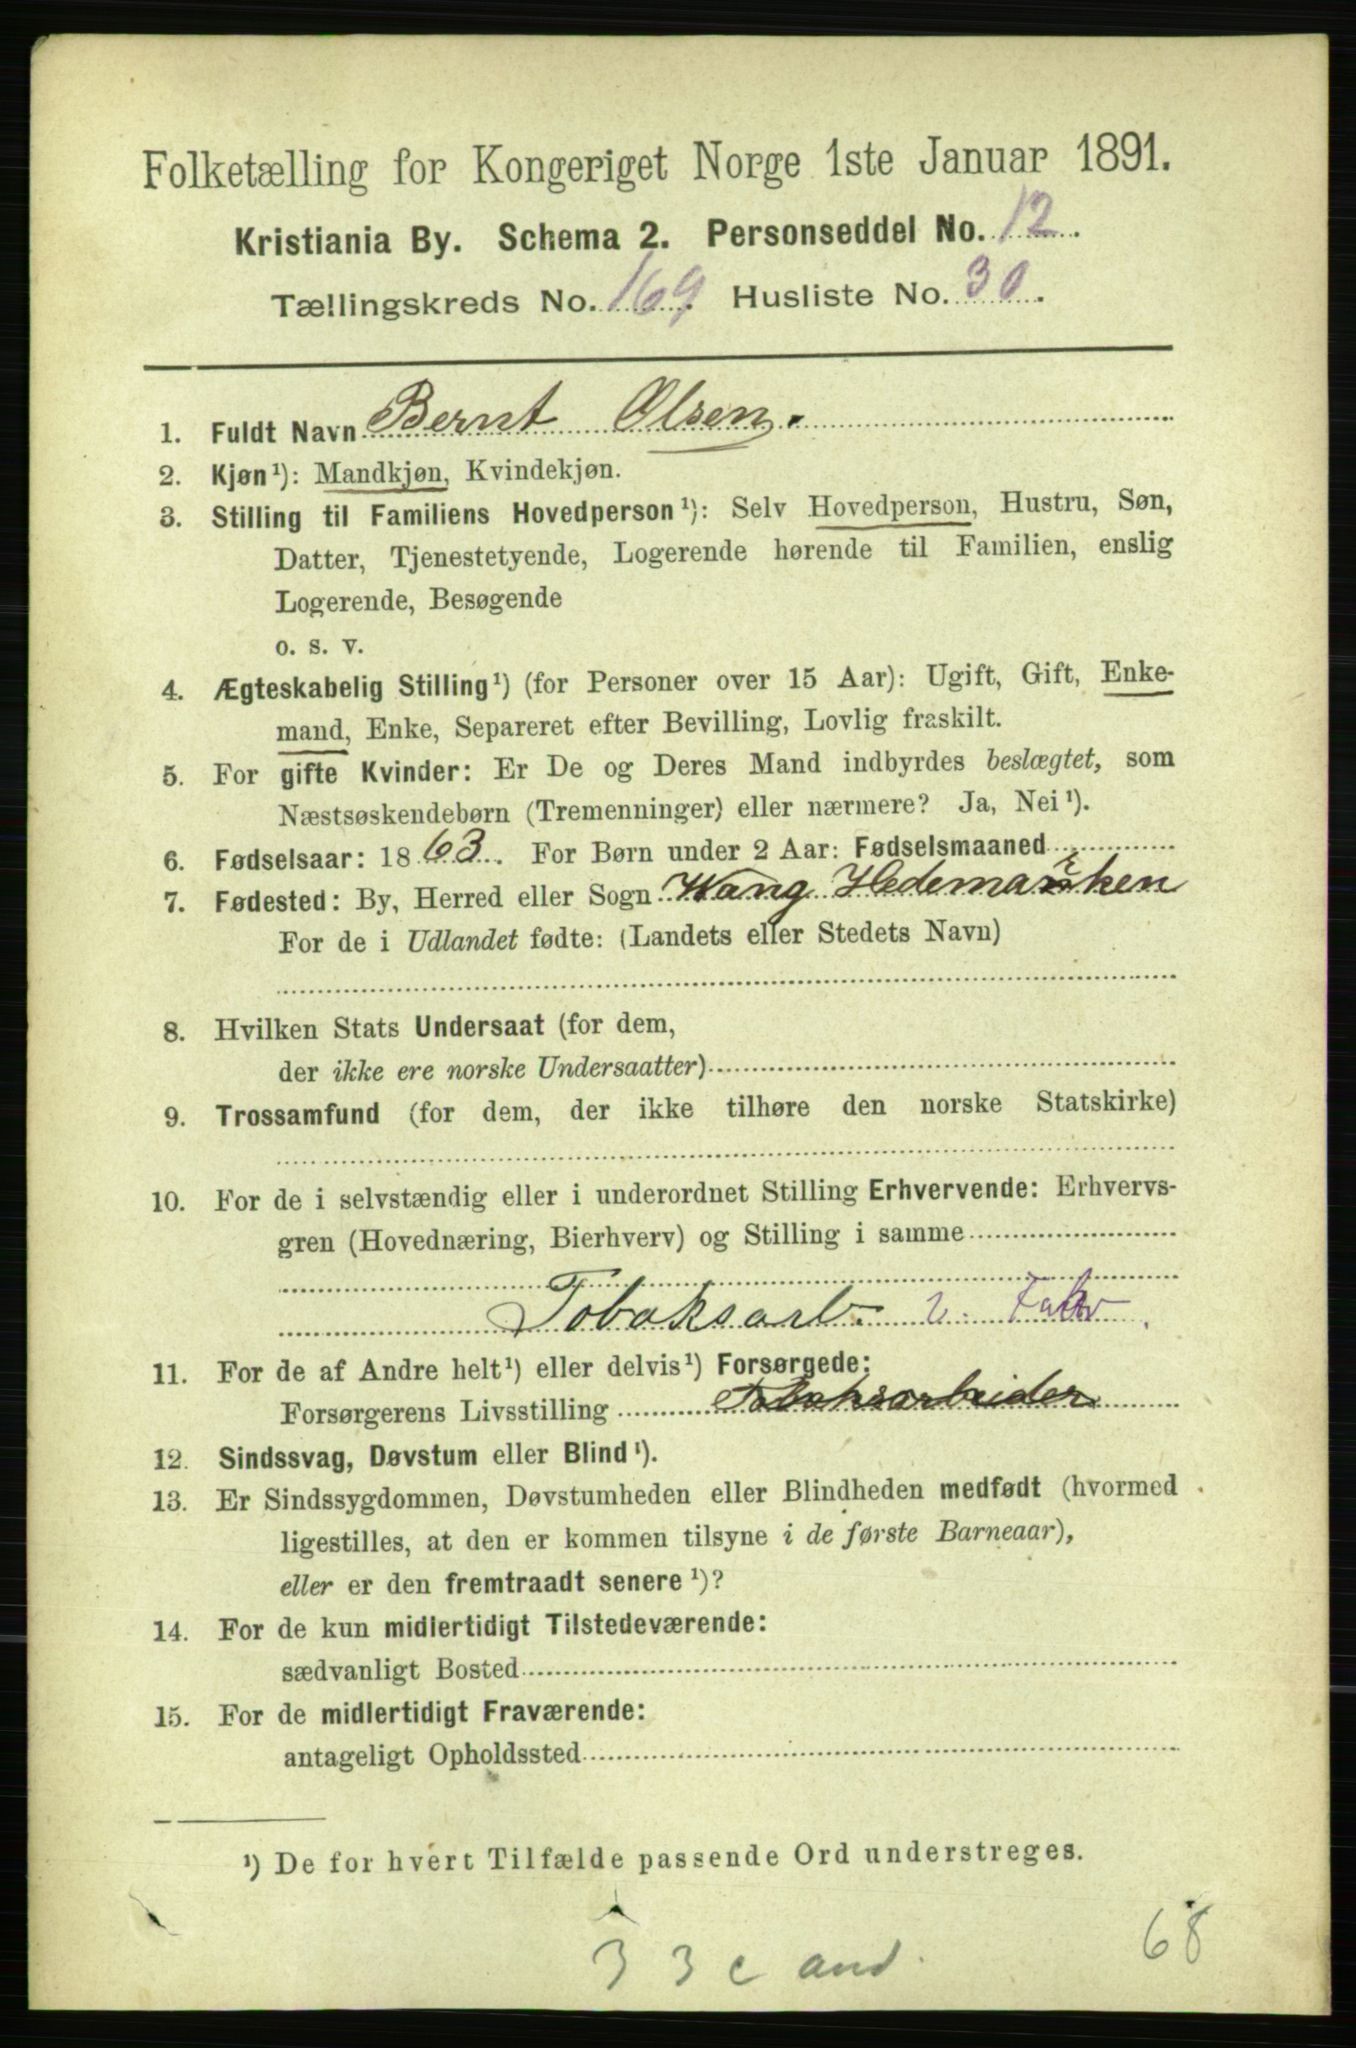 Folketælling for Kongeriget Norge 1ste Januar 1891.
Kristiania By. Schema 2. Personseddel No. 12.
Tællingskreds No. 169 Husliste No. 30.
1. Fuldt Navn Bernt Olsen.
2. Kjøn¹): Mandkjøn, Kvindekjøn.
3. Stilling til Familiens Hovedperson¹): Selv Hovedperson, Hustru, Søn,
Datter, Tjenestetyende, Logerende hørende til Familien, enslig
Logerende, Besøgende
o. s. v.
4. Ægteskabelig Stilling¹) (for Personer over 15 Aar): Ugift, Gift, Enke-
mand, Enke, Separeret efter Bevilling, Lovlig fraskilt.
5. For gifte Kvinder: Er De og Deres Mand indbyrdes beslægtet, som
Næstsøskendebørn (Tremenninger) eller nærmere? Ja, Nei¹).
6. Fødselsaar: 1863. For Børn under 2 Aar: Fødselsmaaned
7. Fødested: By, Herred eller Sogn Wang Hedemarken
For de i Udlandet fødte: (Landets eller Stedets Navn)
8. Hvilken Stats Undersaat (for dem,
der ikke ere norske Undersaatter)
9. Trossamfund (for dem, der ikke tilhøre den norske Statskirke)
10. For de i selvstændig eller i underordnet Stilling Erhvervende: Erhvervs-
gren (Hovednæring, Bierhverv) og Stilling i samme
Tobaksarb.
11. For de af Andre helt¹) eller delvis¹) Forsørgede:
Forsørgerens Livsstilling Tobaksarbeider
12. Sindssvag, Døvstum eller Blind¹).
13. Er Sindssygdommen, Døvstumheden eller Blindheden medfødt (hvormed
ligestilles, at den er kommen tilsyne i de første Barneaar),
eller er den fremtraadt senere¹)?
14. For de kun midlertidigt Tilstedeværende:
sædvanligt Bosted
15. For de midlertidigt Fraværende:
antageligt Opholdssted
¹) De for hvert Tilfælde passende Ord understreges.
68
3 3 c and.